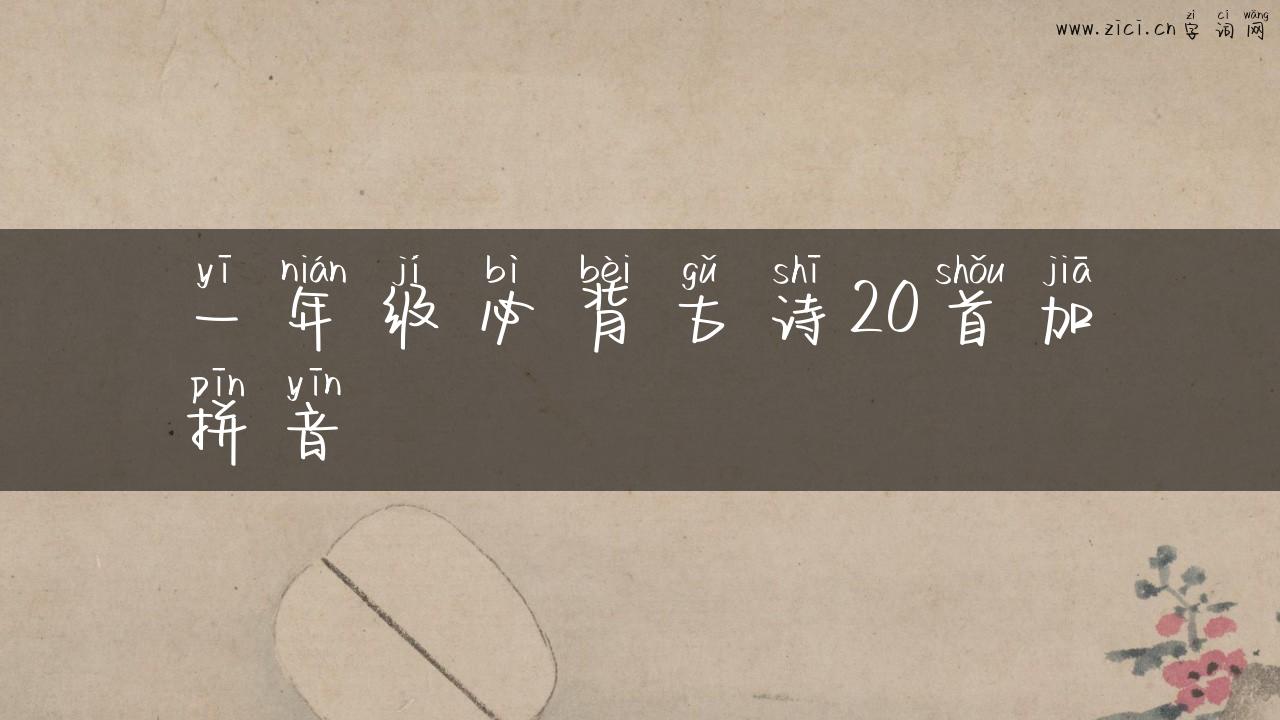 zì cí wǎng
www.zici.cn 字 词 网
yī nián jí bì bèi gǔ shī shǒu jiā
一 年 级 必 背 古 诗 20 首 加
pīn yīn
拼 音